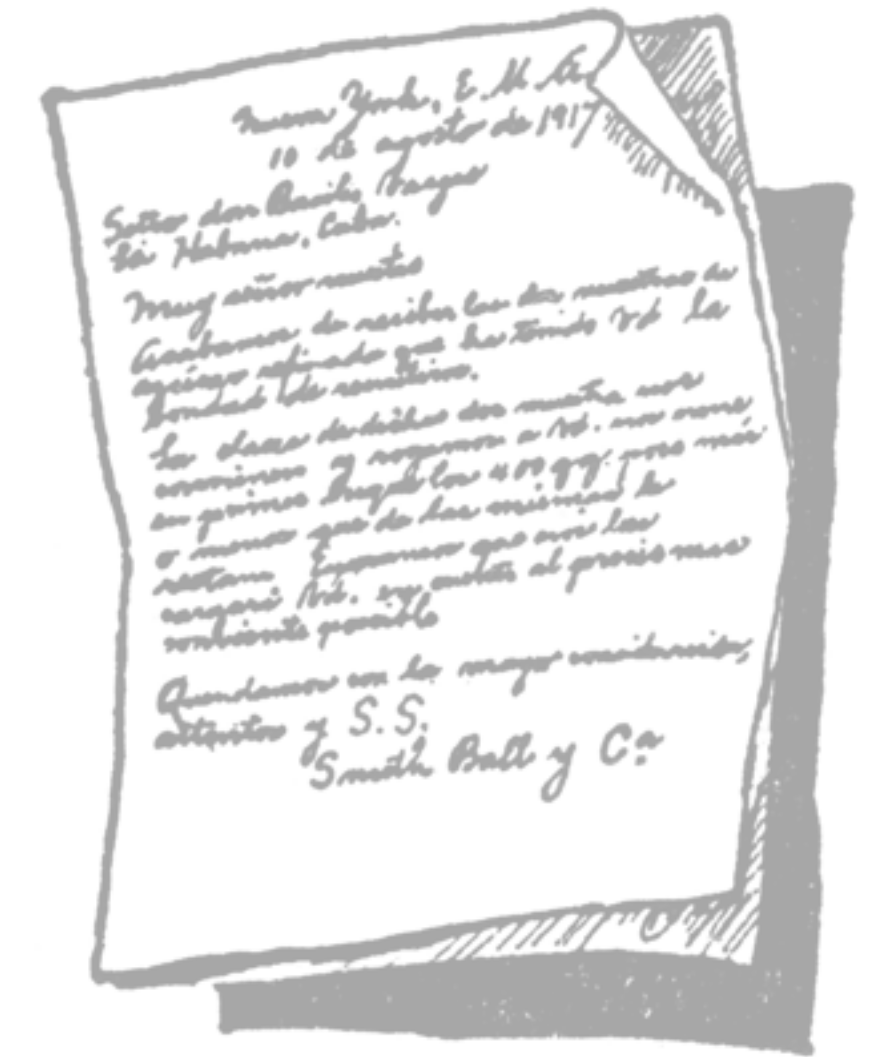 Nueva York, E. U. A.
10 de agosto de 1917
Señor don Basilio Vargas
La Habana, Cuba.
Muy señor nuestro
Acabamos de recibir las dos muestras de
azúcar refinado que ha tenido Vd la
bondad de remitirnos.
La clase de dichas dos muestra nos
conviene y rogamos a Vd. nos
en primer lugar los 400 qq. poco más
o menos que de las mismas le
restan. Esperamos que nos las
cargará Vd. en cuenta al precio mas
conveniente posible
Quedamos con la mayor consideración,
atentos y S. S.
Smith Ball y Cª